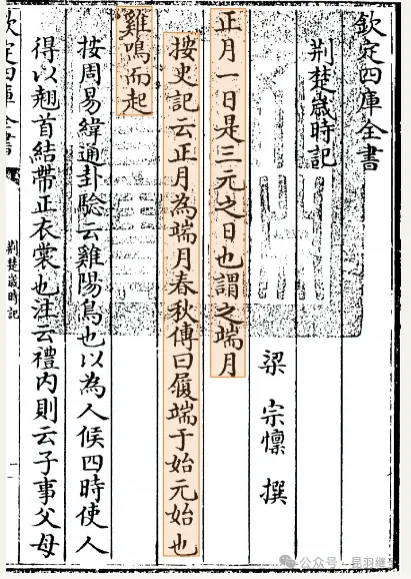 欽定四庫全書
荆楚歲時記
梁 宗懍 撰
正月一日是三元之日也謂之端月
按史記云正月為端月春秋傳曰履端于始元始也
雞鳴而起
按周易緯通卦驗云雞陽鳥也以為人候四時使人
得以翹首結帶正衣裳也注云禮內則云子事父母
欽定四庫全書
荆楚歲時記
一
公众号·昆羽继